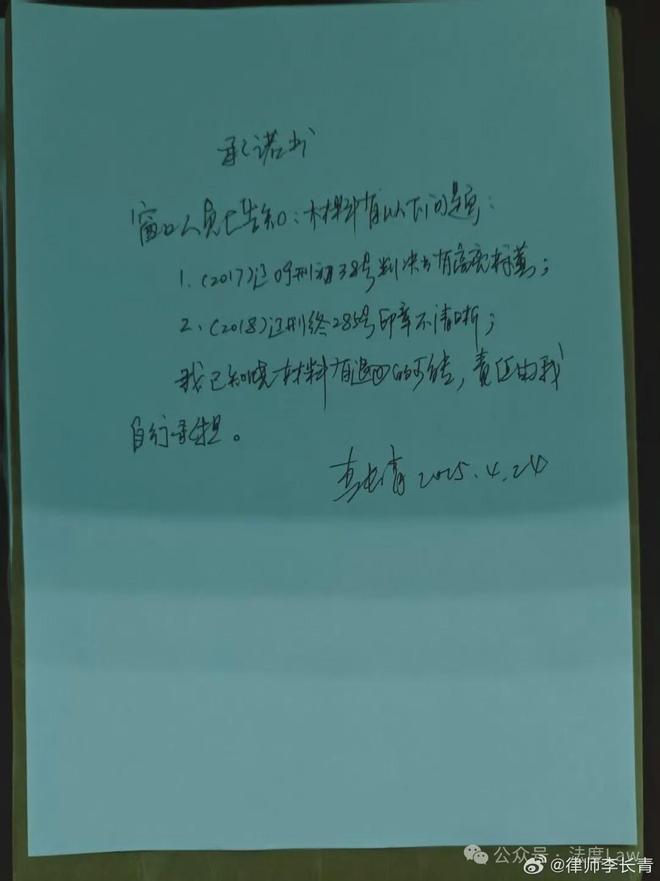 承诺书
窗口人员已告知：材料有以下问题：
1、(2017)辽09刑初38号判决书有
2、(2018)辽刑终285号印章不清晰；
我已知晓材料有退回的可能，责任由我
自行承担。
李长青 2025.4.24
公众号·法度Law
@律师李长青